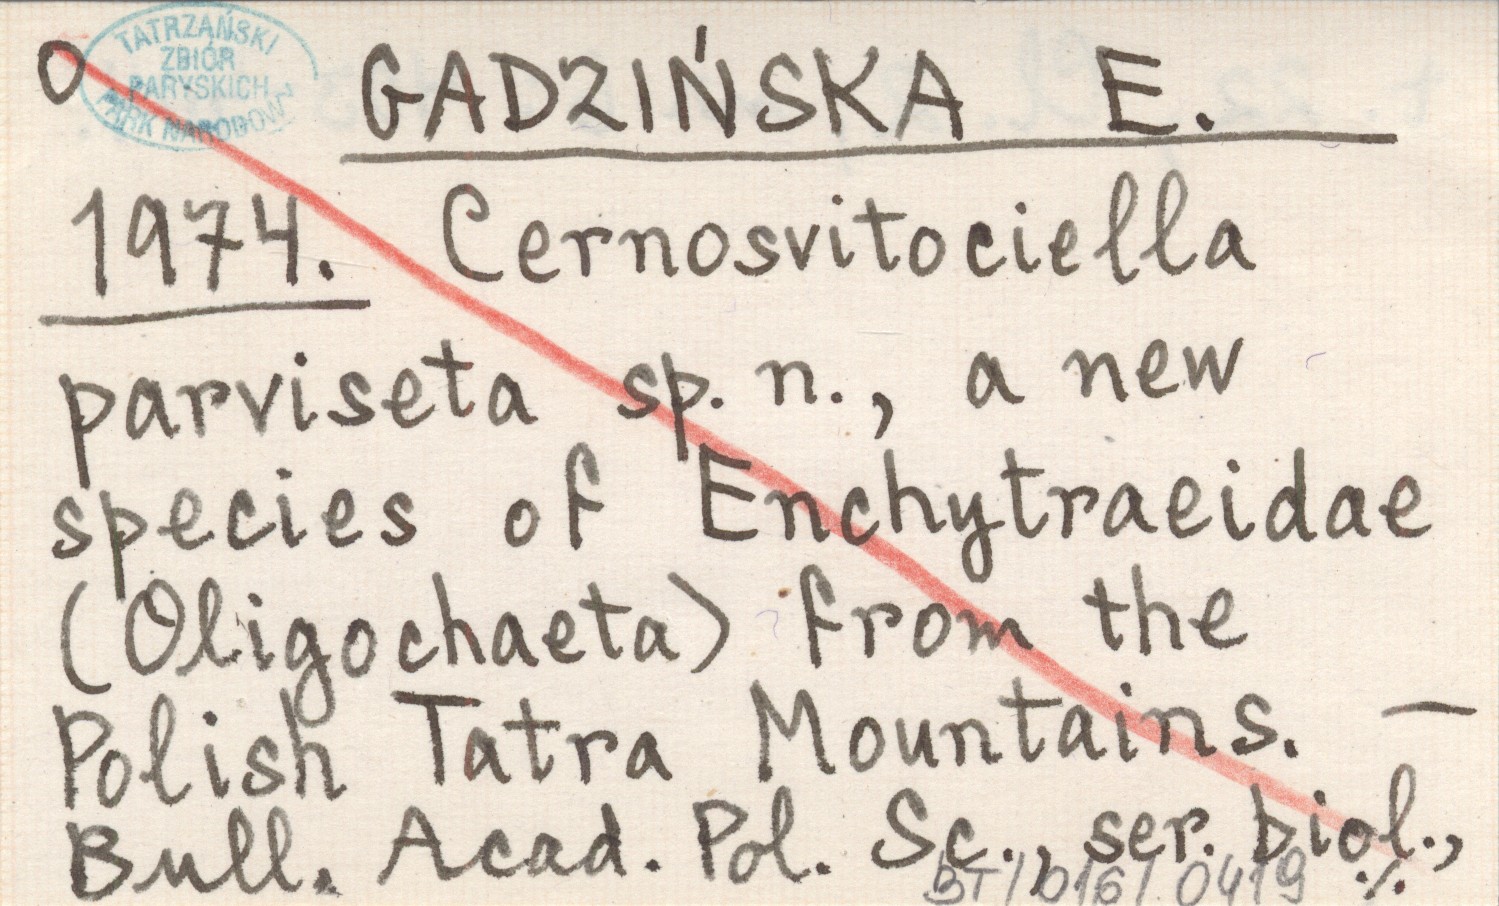 TATRZAŃSKI
ZBIÓR
PARYSKICH
PARK NARODOWY
O GADZIŃSKA E.
1974. Cernosvitociella
parviseta sp. n., a new
species of Enchytraeidae
(Oligochaeta) from the
Polish Tatra Mountains. —
Bull. Acad. Pol. Sc., ser. biol.,
BT/b16/0419 ./.